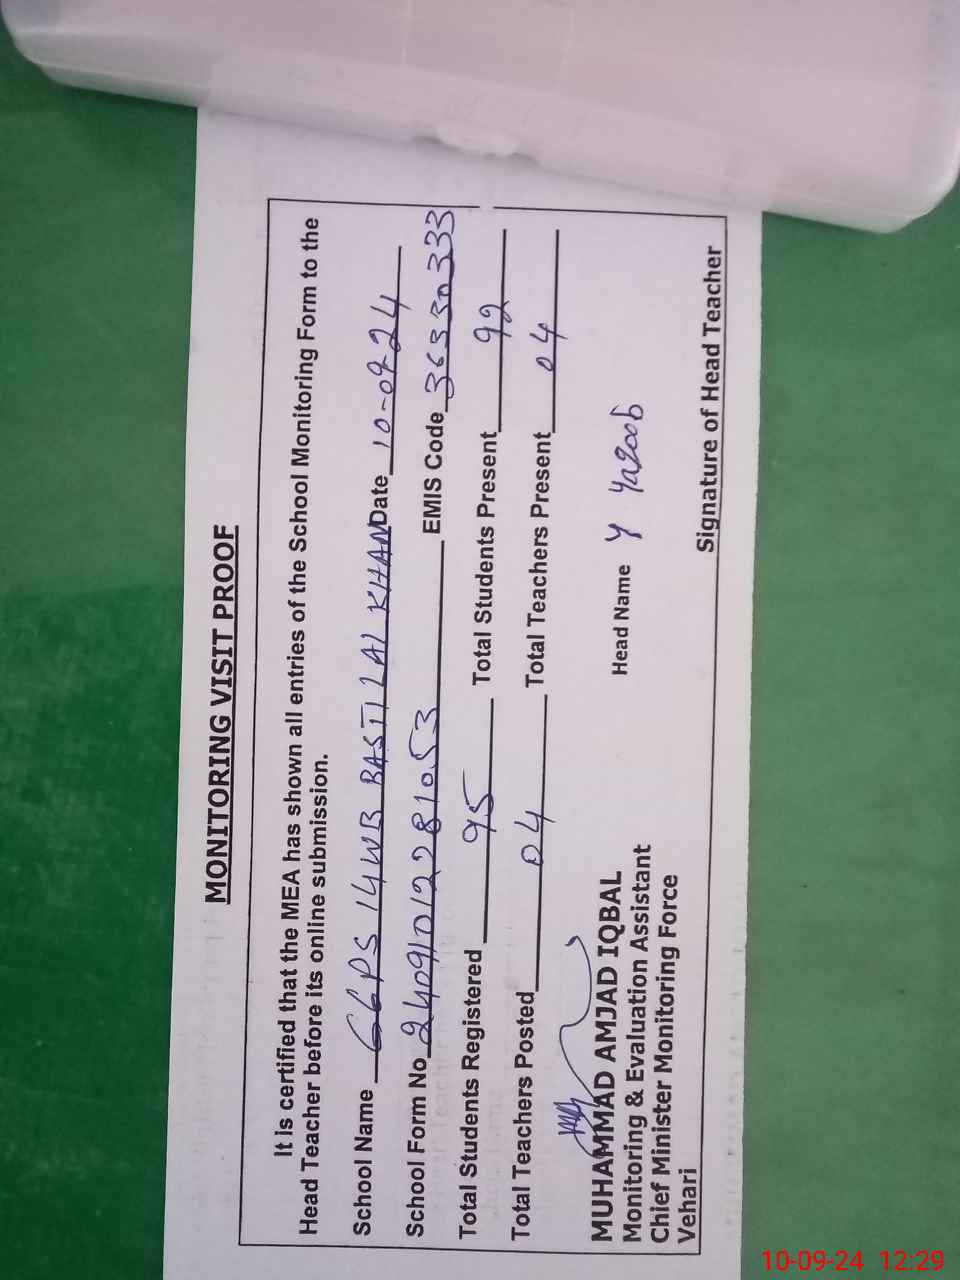 MONITORING VISIT PROOF
It is certified that the MEA has shown all entries of the School Monitoring Form to the
Head Teacher before its online submission.
School Name GGPS 14WB BASTI LAL KHAN Date 10-09-24
School Form No 24091012281053 EMIS Code 36330333
Total Students Registered 95 Total Students Present 92
Total Teachers Posted 04 Total Teachers Present 04
MUHAMMAD AMJAD IQBAL
Monitoring & Evaluation Assistant
Chief Minister Monitoring Force
Vehari
Head Name
Signature of Head Teacher
10-09-24 12:29